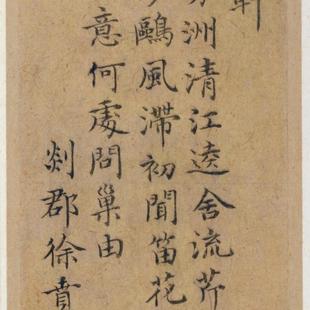 軒
洲清江逶舍流芹
鷗風滯初聞笛花
意何處問巢由
剡郡徐賁